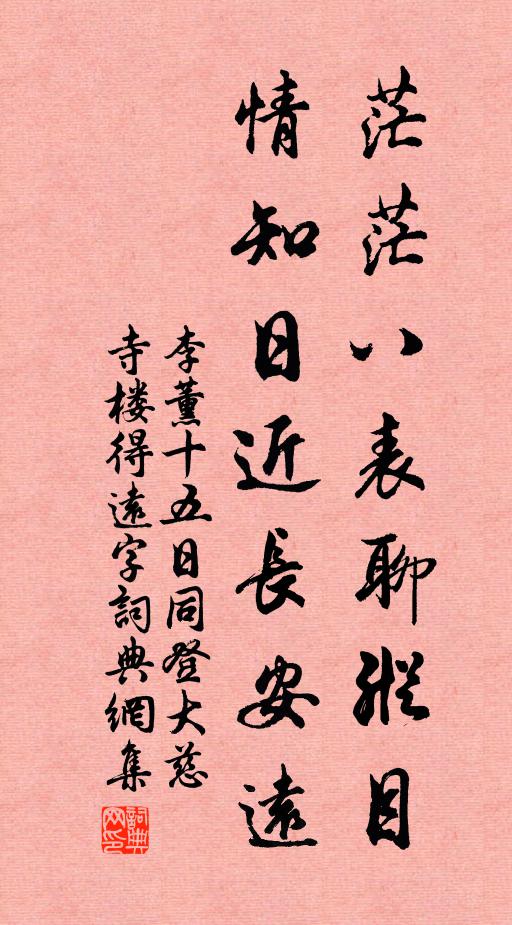 茫茫八表聊縱目
情知日近長安遠
李薰十五日同登大慈
寺楼得遠字詞典網集
詞典網印